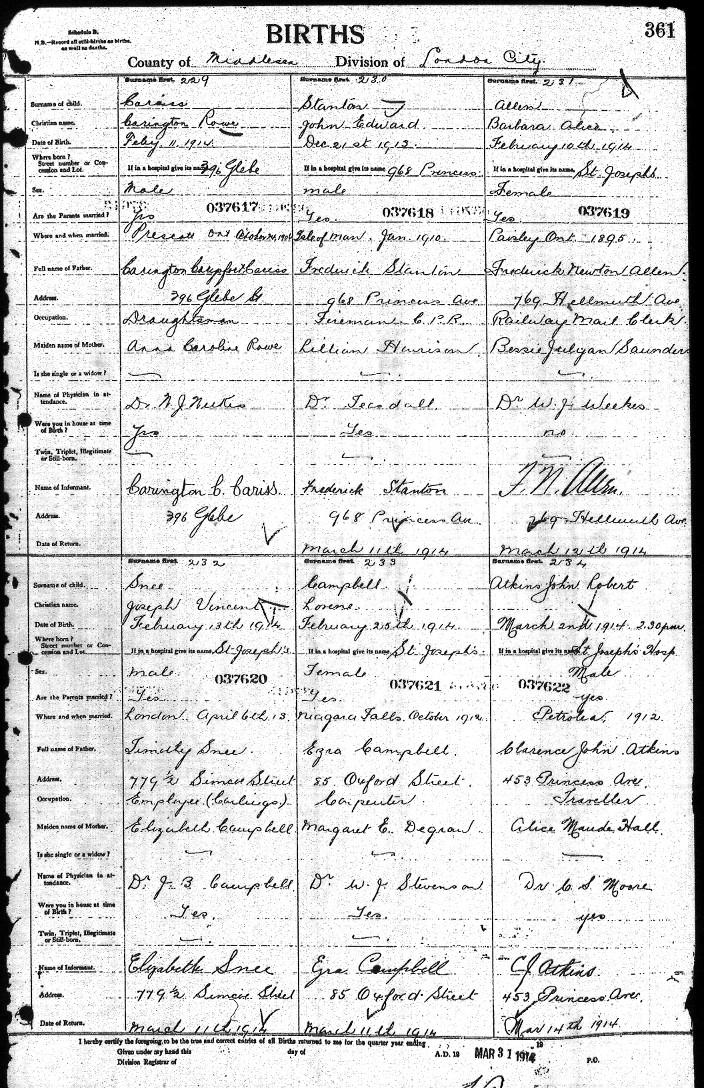 Schedule B.
N.B.—Record all still-births as births, as well as deaths.
BIRTHS
361
County of Middlesex Division of London City
Surname first. 229 Surname first. 230 Surname first. 231
Surname of child. Cariss Stanton Allen
Christian name. Carington Rowe John Edward Barbara Alice
Date of Birth. Feby 11. 1914. Dec. 21st 1912. February 10th 1914
Where born? Street number or Concession and Lot. If in a hospital give its name, 396 Glebe If in a hospital give its name, 968 Princess If in a hospital give its name, St. Josephs
Sex. Male male Female
037617 037618 037619
Are the Parents married? Yes Yes. Yes.
Where and when married. Prescott Ont Isle of Man. Jan. 1910. Paisley Ont. 1895.
Full name of Father. Carington Cariss Frederick Stanton Frederick Newton Allen.
Address. 396 Glebe St 968 Princess Ave. 769 Hellmuth Ave.
Occupation. Draughtsman Fireman C.P.R. Railway Mail Clerk
Maiden name of Mother. Anna Caroline Rowe Lillian Harrison Bessie Julyan Saunders
Is she single or a widow?
Name of Physician in attendance. Dr. Dr. Teasdall. Dr W. J. Weekes
Were you in house at time of Birth? Yes Yes. no
Twin, Triplet, Illegitimate or Still-born.
Name of Informant. Carington C. Cariss. Frederick Stanton F. N. Allen.
Address. 396 Glebe 968 Princess Ave. 769 Hellmuth Ave.
Date of Return. March 11th 1914 March 12th 1914
Surname first. 232 Surname first. 233 Surname first. 234
Surname of child. Snee Campbell Atkins John Robert
Christian name. Joseph Vincent Lorene
Date of Birth. February 13th 1914 February 25th 1914 March 2nd 1914. 2.30 pm.
Where born? Street number or Concession and Lot. If in a hospital give its name, St. Joseph's If in a hospital give its name, St. Joseph's If in a hospital give its name, St Josephs Hosp.
Sex. male Female Male
037620 037621 037622
Are the Parents married? Yes Yes. yes
Where and when married. London. April 6th 13. Niagara Falls. October 1912. Petrolea. 1912.
Full name of Father. Timothy Snee. Ezra Campbell. Clarence John Atkins
Address. 779½ Simcoe Street 85 Oxford Street. 453 Princess Ave.
Occupation. Employee. (Carlings). Carpenter. Traveller
Maiden name of Mother. Elizabeth Campbell Margaret E. Degraw. Alice Maude Hall.
Is she single or a widow?
Name of Physician in attendance. Dr J. B. Campbell. Dr W. J. Stevenson Dr C. S. Moore
Were you in house at time of Birth? Yes. Yes. yes
Twin, Triplet, Illegitimate or Still-born.
Name of Informant. Elizabeth Snee Ezra Campbell C. J. Atkins.
Address. 779½ Simcoe Street 85 Oxford Street 453 Princess Ave.
Date of Return. March 11th 1914 March 11th 1914 Mar 14th 1914.
I hereby certify the foregoing, to be the true and correct entries of all Births returned to me for the quarter year ending 19
Given under my hand this day of A.D. 19 MAR 31 1914
Division Registrar of P.O.